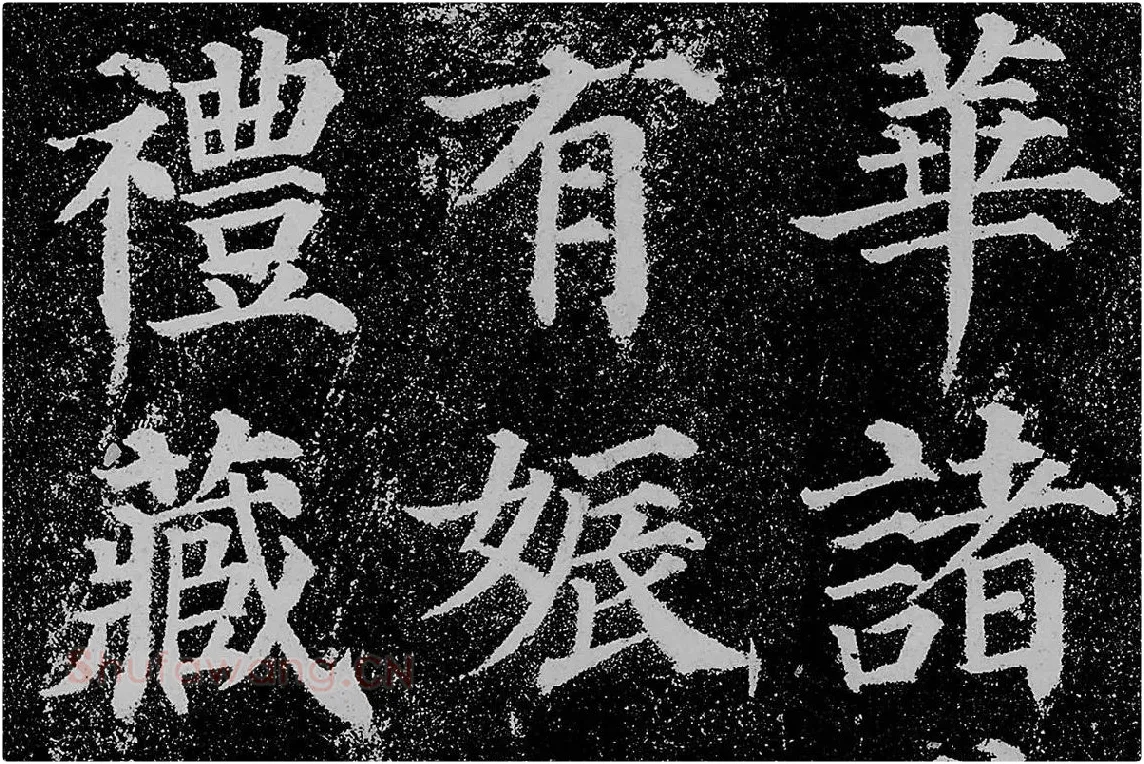 華諸
有娠
禮藏
Shufawang.CN